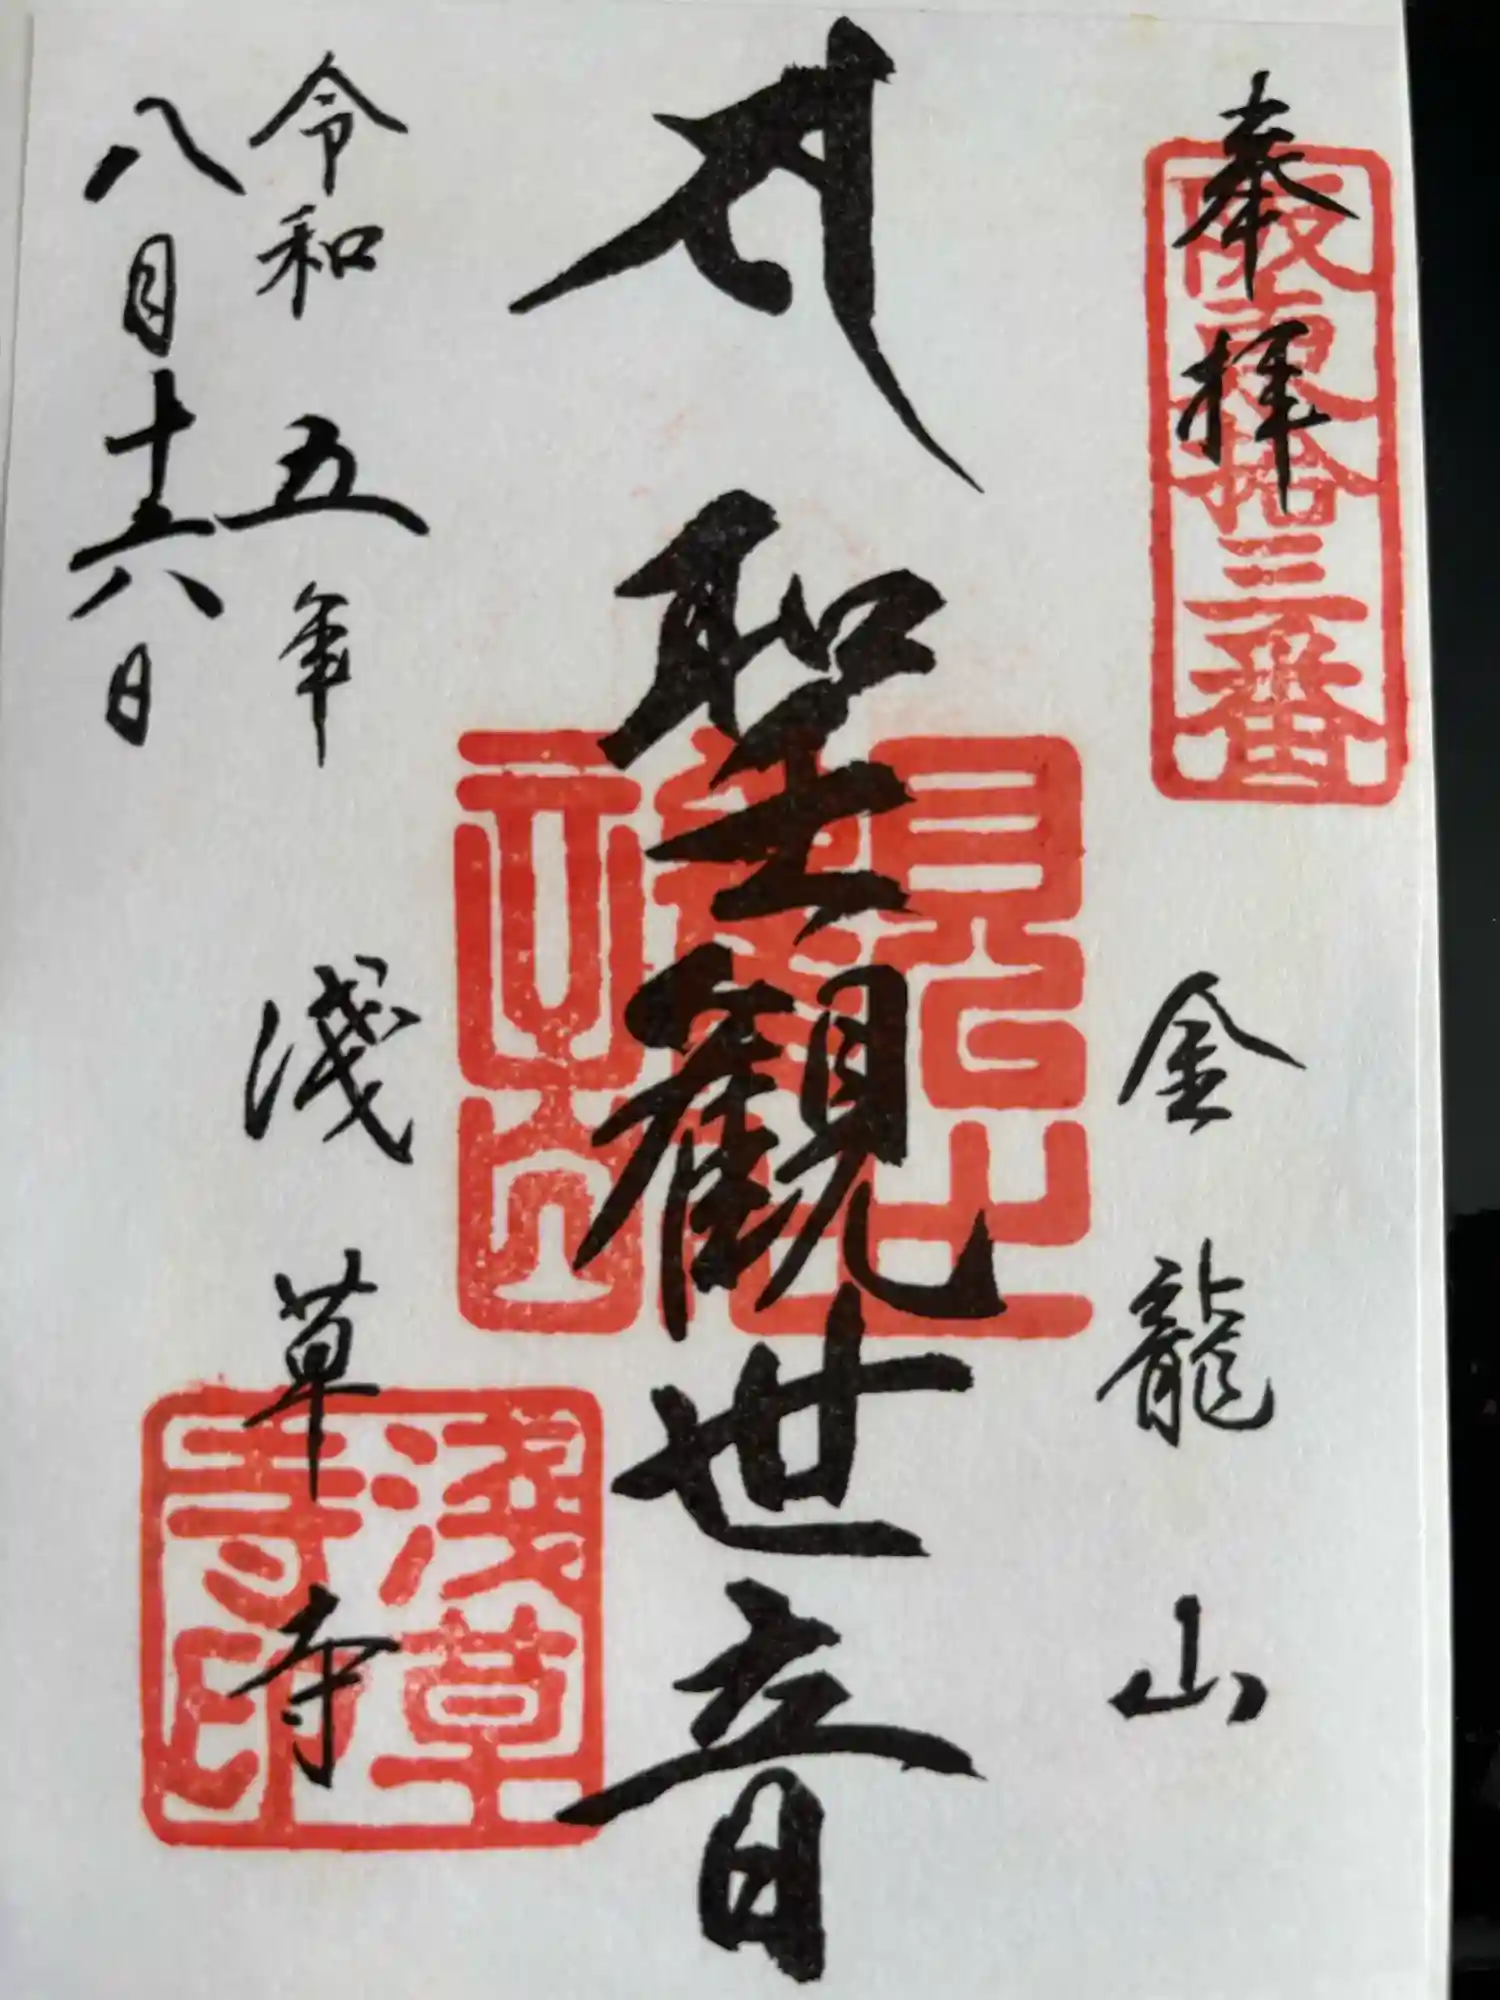 奉拝
阪東拾三番
金龍山
聖観世音
淺草寺
淺草寺印
令和五年
八月十六日